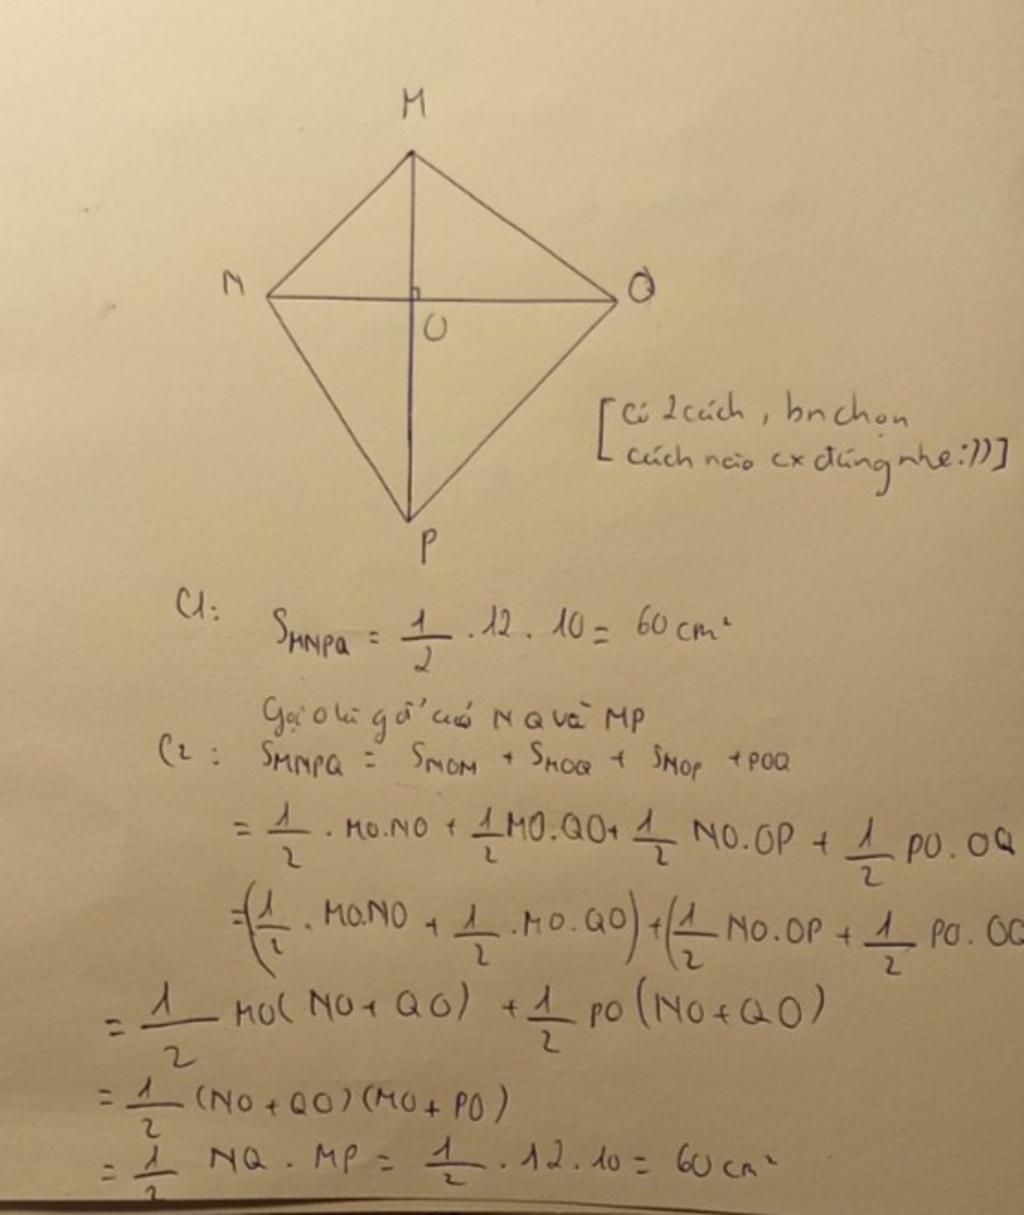 M
N
Q
O
P
[có 2 cách, bn chọn
cách nào cx đúng nhé:))]
C1: S_MNPQ = 1/2 . 12 . 10 = 60 cm²
Gọi O là gđ' của NQ và MP
C2: S_MNPQ = S_NOM + S_MOQ + S_NOP + POQ
= 1/2 . MO.NO + 1/2 MO.QO + 1/2 NO.OP + 1/2 PO.OQ
=(1/2 . MO.NO + 1/2 . MO.QO) + (1/2 NO.OP + 1/2 PO.OQ
= 1/2 MO(NO + QO) + 1/2 PO(NO + QO)
= 1/2 (NO + QO)(MO + PO)
= 1/2 NQ . MP = 1/2 . 12 . 10 = 60 cm²